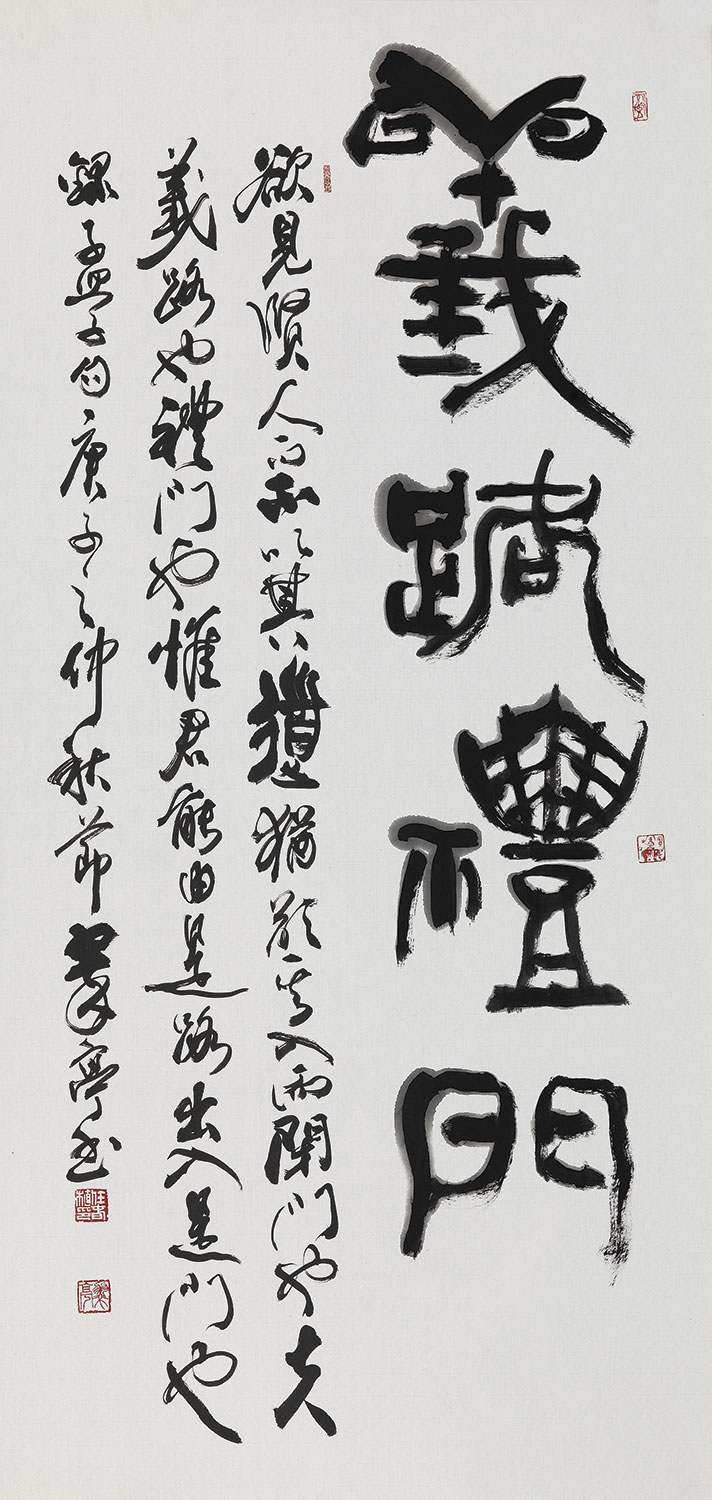 義路禮門
欲見賢人而不以其道猶欲其入而閉門也夫
義路也禮門也惟君能由是路出入是門也
錄孟子句庚子之仲秋節亭書